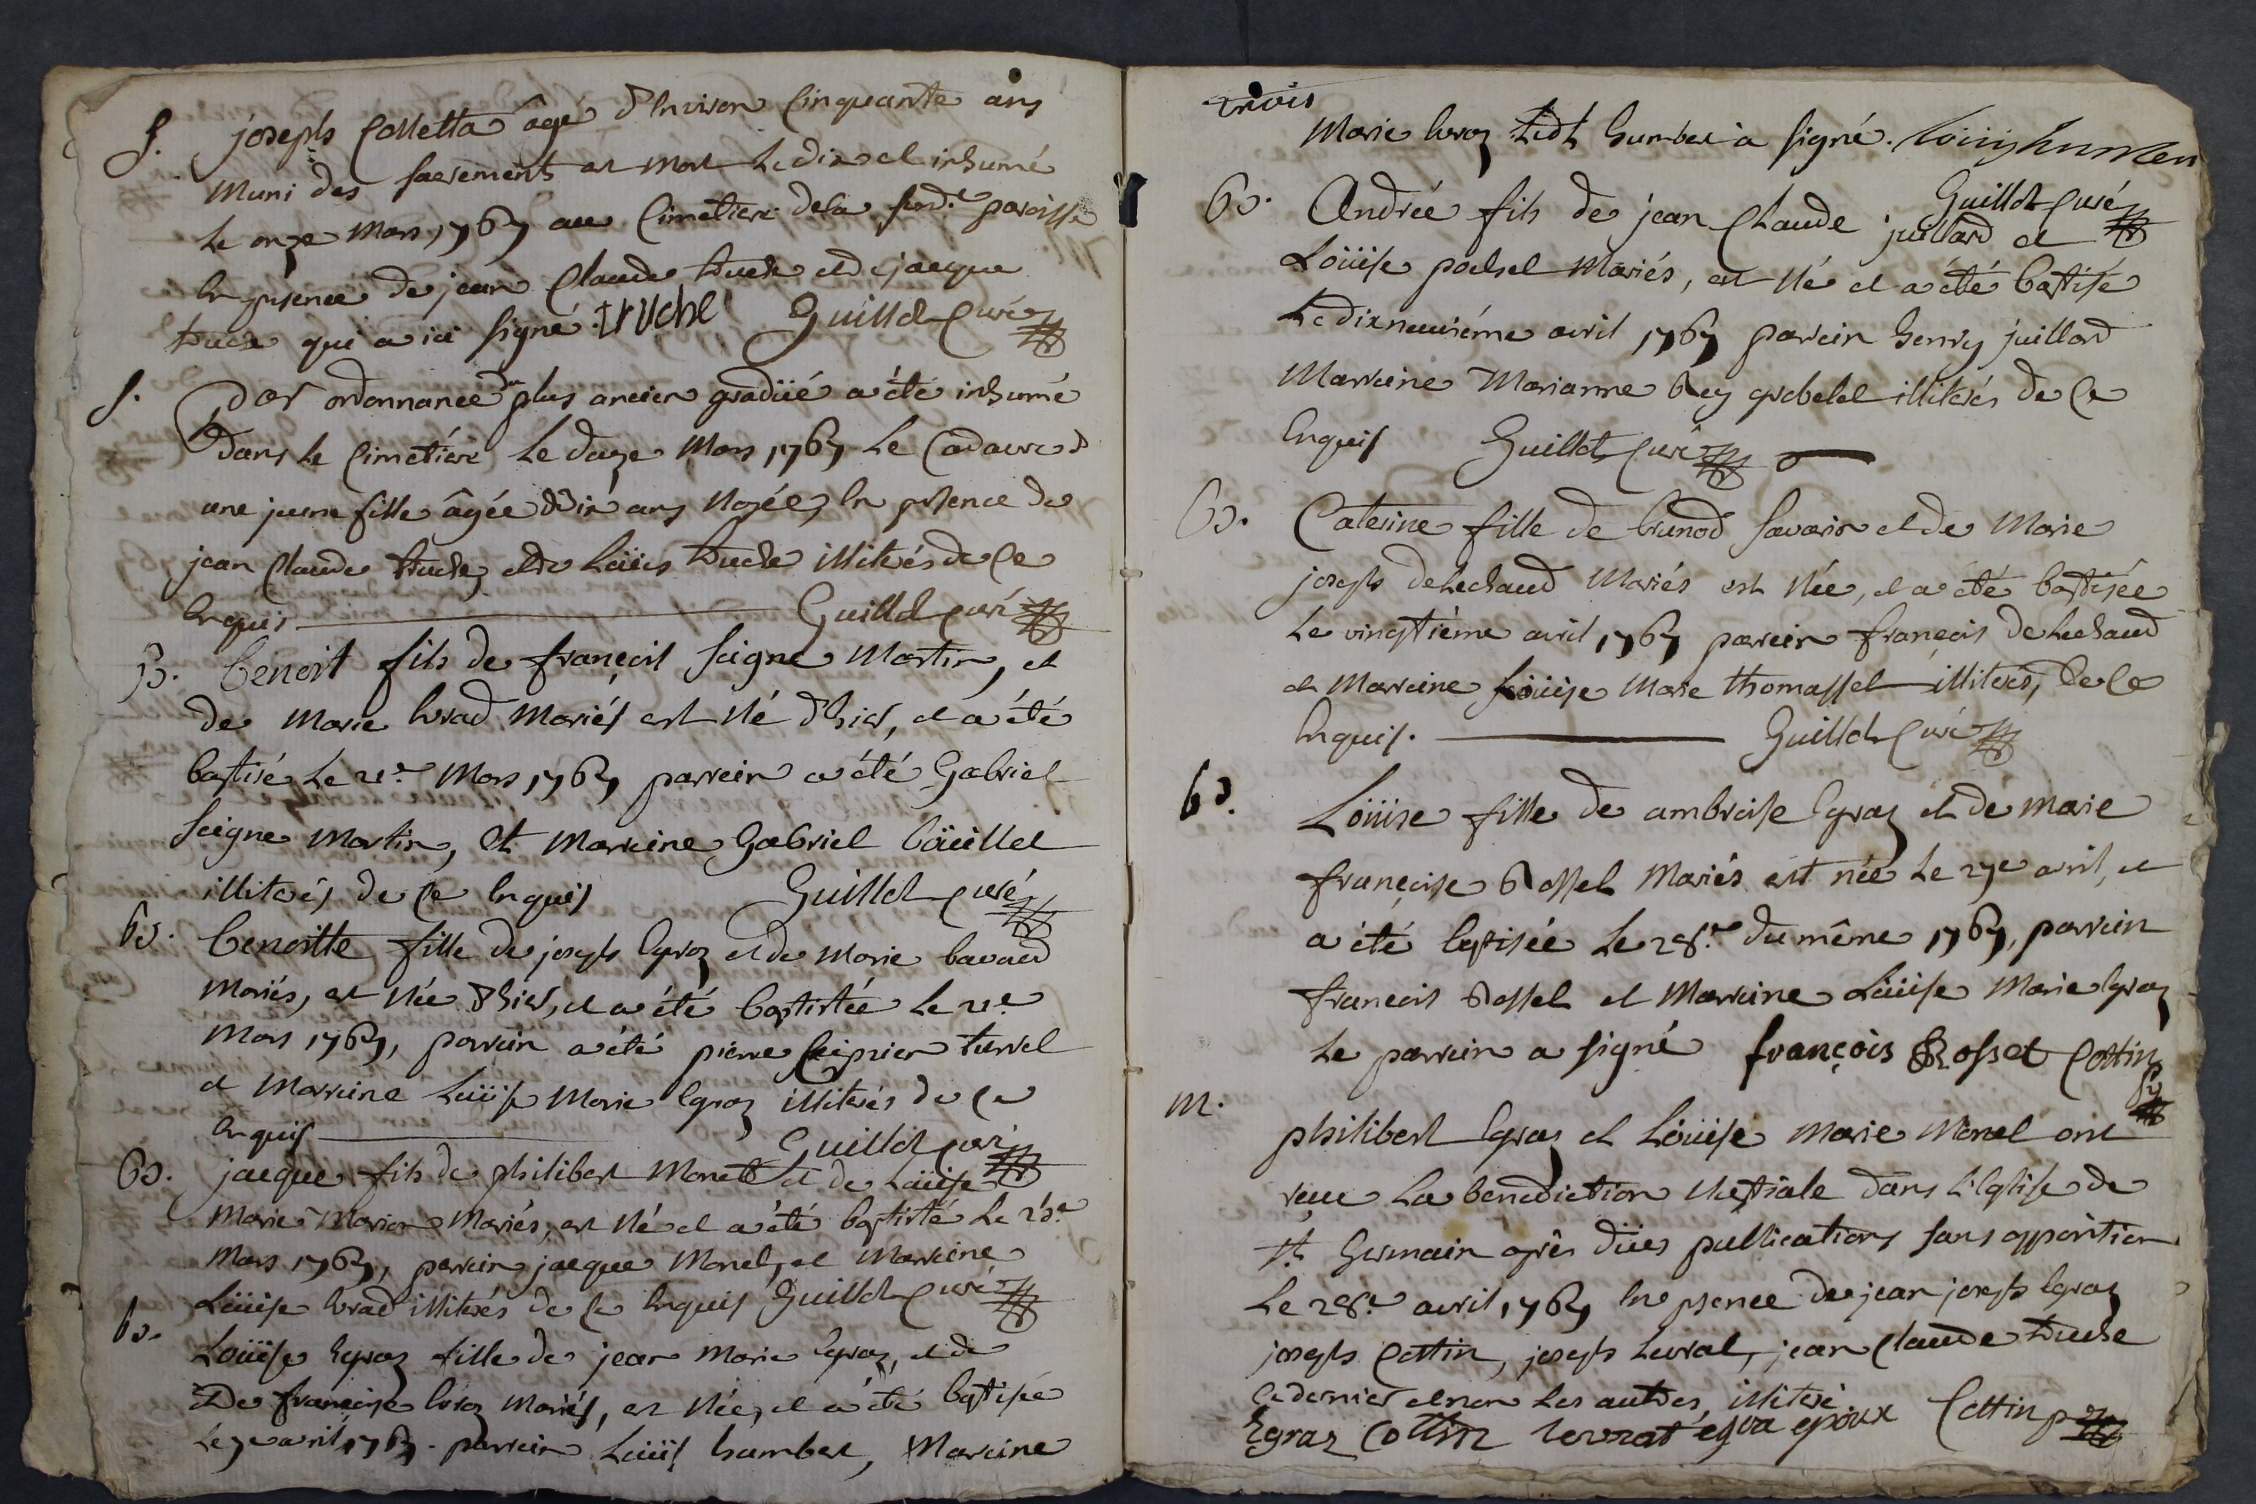 S. joseph Colletta âgé d'environ Cinquante ans
muni des sacrements est mort Le dix et inhumé
Le onze mars 1767 au Cimetiere de la susd.e paroisse
En presence de jean Claude truche et de jacque
truche qui a ici signé. truche Guillot Curé
S. Par ordonnance du plus ancien gradüé a été inhumé
Dans le Cimetiére Le douze Mars 1767 Le Cadavre d
une jeune fille âgée de dix ans noyée, en presence de
jean Claude truche, et de Loüis truche illiterés de Ce
Enquis Guillot Curé
B. benoit fils de françois seigne Martin, et
de Marie Mariés est Né d'hier, et a été
baptisé Le 21e Mars 1767 parrein a été Gabriel
seigne Martin, et Marreine Gabriel
illiterés de Ce Enquis Guillot Curé
bs. benoitte fille de joseph Egraz et de Marie bavaud
Mariés, est Née d'hier, et a été baptistée Le 21e
Mars 1767, parrein a été pierre
et Marreine Loüise Marie Egraz illiterés de Ce
Enquis Guillot Curé
bs. jacque fils de philibert Monet et de Loüise
Marie Marion Mariés, est Né et a été baptisté Le 23e
Mars 1767, parrein jacque Monet, et Marreine
Loüise illiterés de Ce Enquis Guillot Curé
bs. Loüise Egraz fille de jean Marie Egraz, et de
De françoise Mariés, est Née, et a été baptisée
Le 7e avril 1767. parrein Loüis humbert, Marreine
trois
Marie Ledt humbert a signé. Louis humbert
Guillot Curé
bs. Andrée fils de jean Claude juillard et
Loüise Mariés, est Né et a été baptisé
Le dixneuviéme avril 1767 parrein henry juillard
Marreine Marianne Rey grobelet illiterés de Ce
Enquis Guillot Curé
bs. Caterine fille de brunod savarin et de Marie
joseph delechaud Mariés est Née, et a été baptisée
Le vingtiéme avril 1767 parrein françois delechaud
et Marreine Loüise Marie thomasset illiterés, de Ce
Enquis. Guillot Curé
bs. Loüise fille de ambroise Egraz et de marie
françoise Rosset Mariés est née Le 27e avril, et
a été baptisée Le 28e du même 1767, parrein
françois Rosset et Marreine Loüise Marie Egraz
Le parrein a signé françois Rosset Cottin
m. philibert Egraz et Loüise Marie Monet ont
reçue La benediction Nuptiale dans L'Eglise de
st Germain après dües publications sans opposition
Le 28e avril 1767 En presence de jean joseph Egraz
joseph Cottin, joseph Levrat, jean Claude truche
Ce dernier et non Les autres illiteré
Egraz Cottin levrat egra epoux Cottin